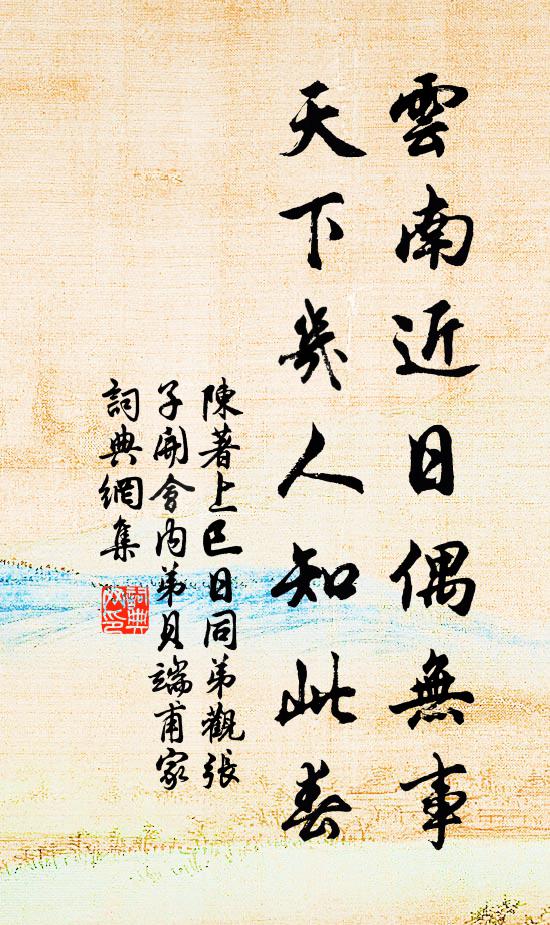 雲南近日偶無事
天下幾人知此春
陳著上巳日同弟觀張
子開會內弟貝端甫家
詞典網集